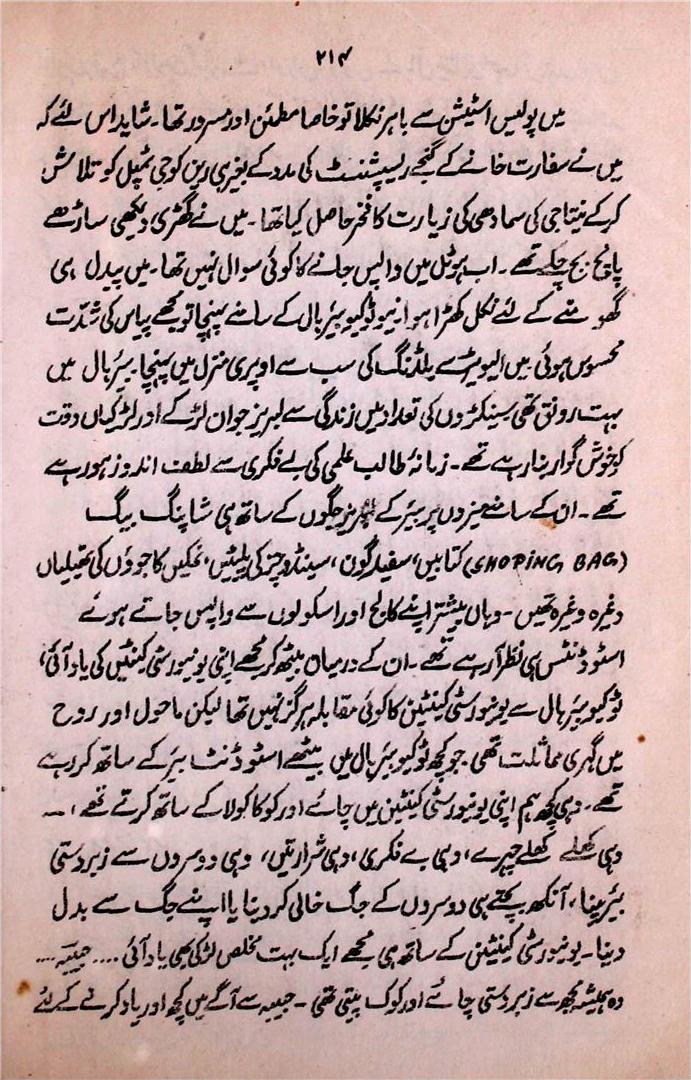 ۲۱۴
میں پولیس اسٹیشن سے باہر نکلا تو خاصا مطمئن اور مسرور تھا۔ شاید اس لئے کہ
میں نے سفارت خانے کے گنجے ریسپشنسٹ کی مدد کے بغیر ہی رین کوجی ٹمپل کو تلاش
کر کے نیتا جی کی سمادھی کی زیارت کا فخر حاصل کیا تھا۔ میں نے گھڑی دیکھی ساڑھے
پانچ بج چکے تھے۔ اب ہوٹل میں واپس جانے کا کوئی سوال نہیں تھا۔ میں پیدل ہی
گھومنے کے لئے نکل کھڑا ہوا۔ نیو ٹوکیو بیئر ہال کے سامنے پہنچا تو مجھے پیاس کی شدّت
محسوس ہوئی میں الیویٹر سے بلڈنگ کی سب سے اوپری منزل میں پہنچا۔ بیئر ہال میں
بہت رونق تھی سینکڑوں کی تعداد میں زندگی سے لبریز جوان لڑکے اور لڑکیاں وقت
کو خوش گوار بنا رہے تھے۔ زمانۂ طالب علمی کی بے فکری سے لطف اندوز ہو رہے
تھے۔ ان کے سامنے میزوں پر بیئر کے لبریز جگوں کے ساتھ ہی شاپنگ بیگ
(SHOPING BAG) کتابیں، سفید گون، سینڈوچز کی پلیٹیں، نمکین کاجوؤں کی تھیلیاں
وغیرہ وغیرہ تھیں۔ وہاں بیشتر اپنے کالج اور اسکولوں سے واپس جاتے ہوئے
اسٹوڈنٹس ہی نظر آ رہے تھے۔ ان کے درمیان بیٹھ کر مجھے اپنی یونیورسٹی کینٹین کی یاد آئی،
ٹوکیو بیئر ہال سے یونیورسٹی کینٹین کا کوئی مقابلہ ہرگز نہیں تھا لیکن ماحول اور روح
میں گہری مماثلت تھی۔ جو کچھ ٹوکیو بیئر ہال میں بیٹھے اسٹوڈنٹ بیئر کے ساتھ کر رہے
تھے۔ وہی کچھ ہم اپنی یونیورسٹی کینٹین میں چائے اور کوکا کولا کے ساتھ کرتے تھے،۔۔
وہی کھلے کھلے چہرے، وہی بے فکری، وہی شرارتیں، وہی دوسروں سے زبردستی
بیئر پینا، آنکھ بچتے ہی دوسروں کے جگ خالی کر دینا یا اپنے جگ سے بدل
دینا۔ یونیورسٹی کینٹین کے ساتھ ہی مجھے ایک بہت مخلص لڑکی بھی یاد آئی .... حبیبہ ....
وہ ہمیشہ مجھ سے زبردستی چائے اور کوک پیتی تھی۔ حبیبہ سے آگے میں کچھ اور یاد کرنے کے لئے